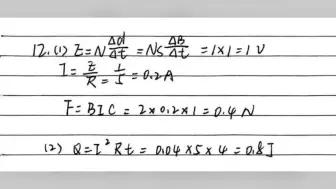 12.(1) E=N Δφ/Δt = NS ΔB/Δt = 1×1 = 1 V
I = E/R = 1/5 = 0.2A
F = BIL = 2×0.2×1 = 0.4 N
(2) Q=I²Rt = 0.04×5×4 = 0.8J